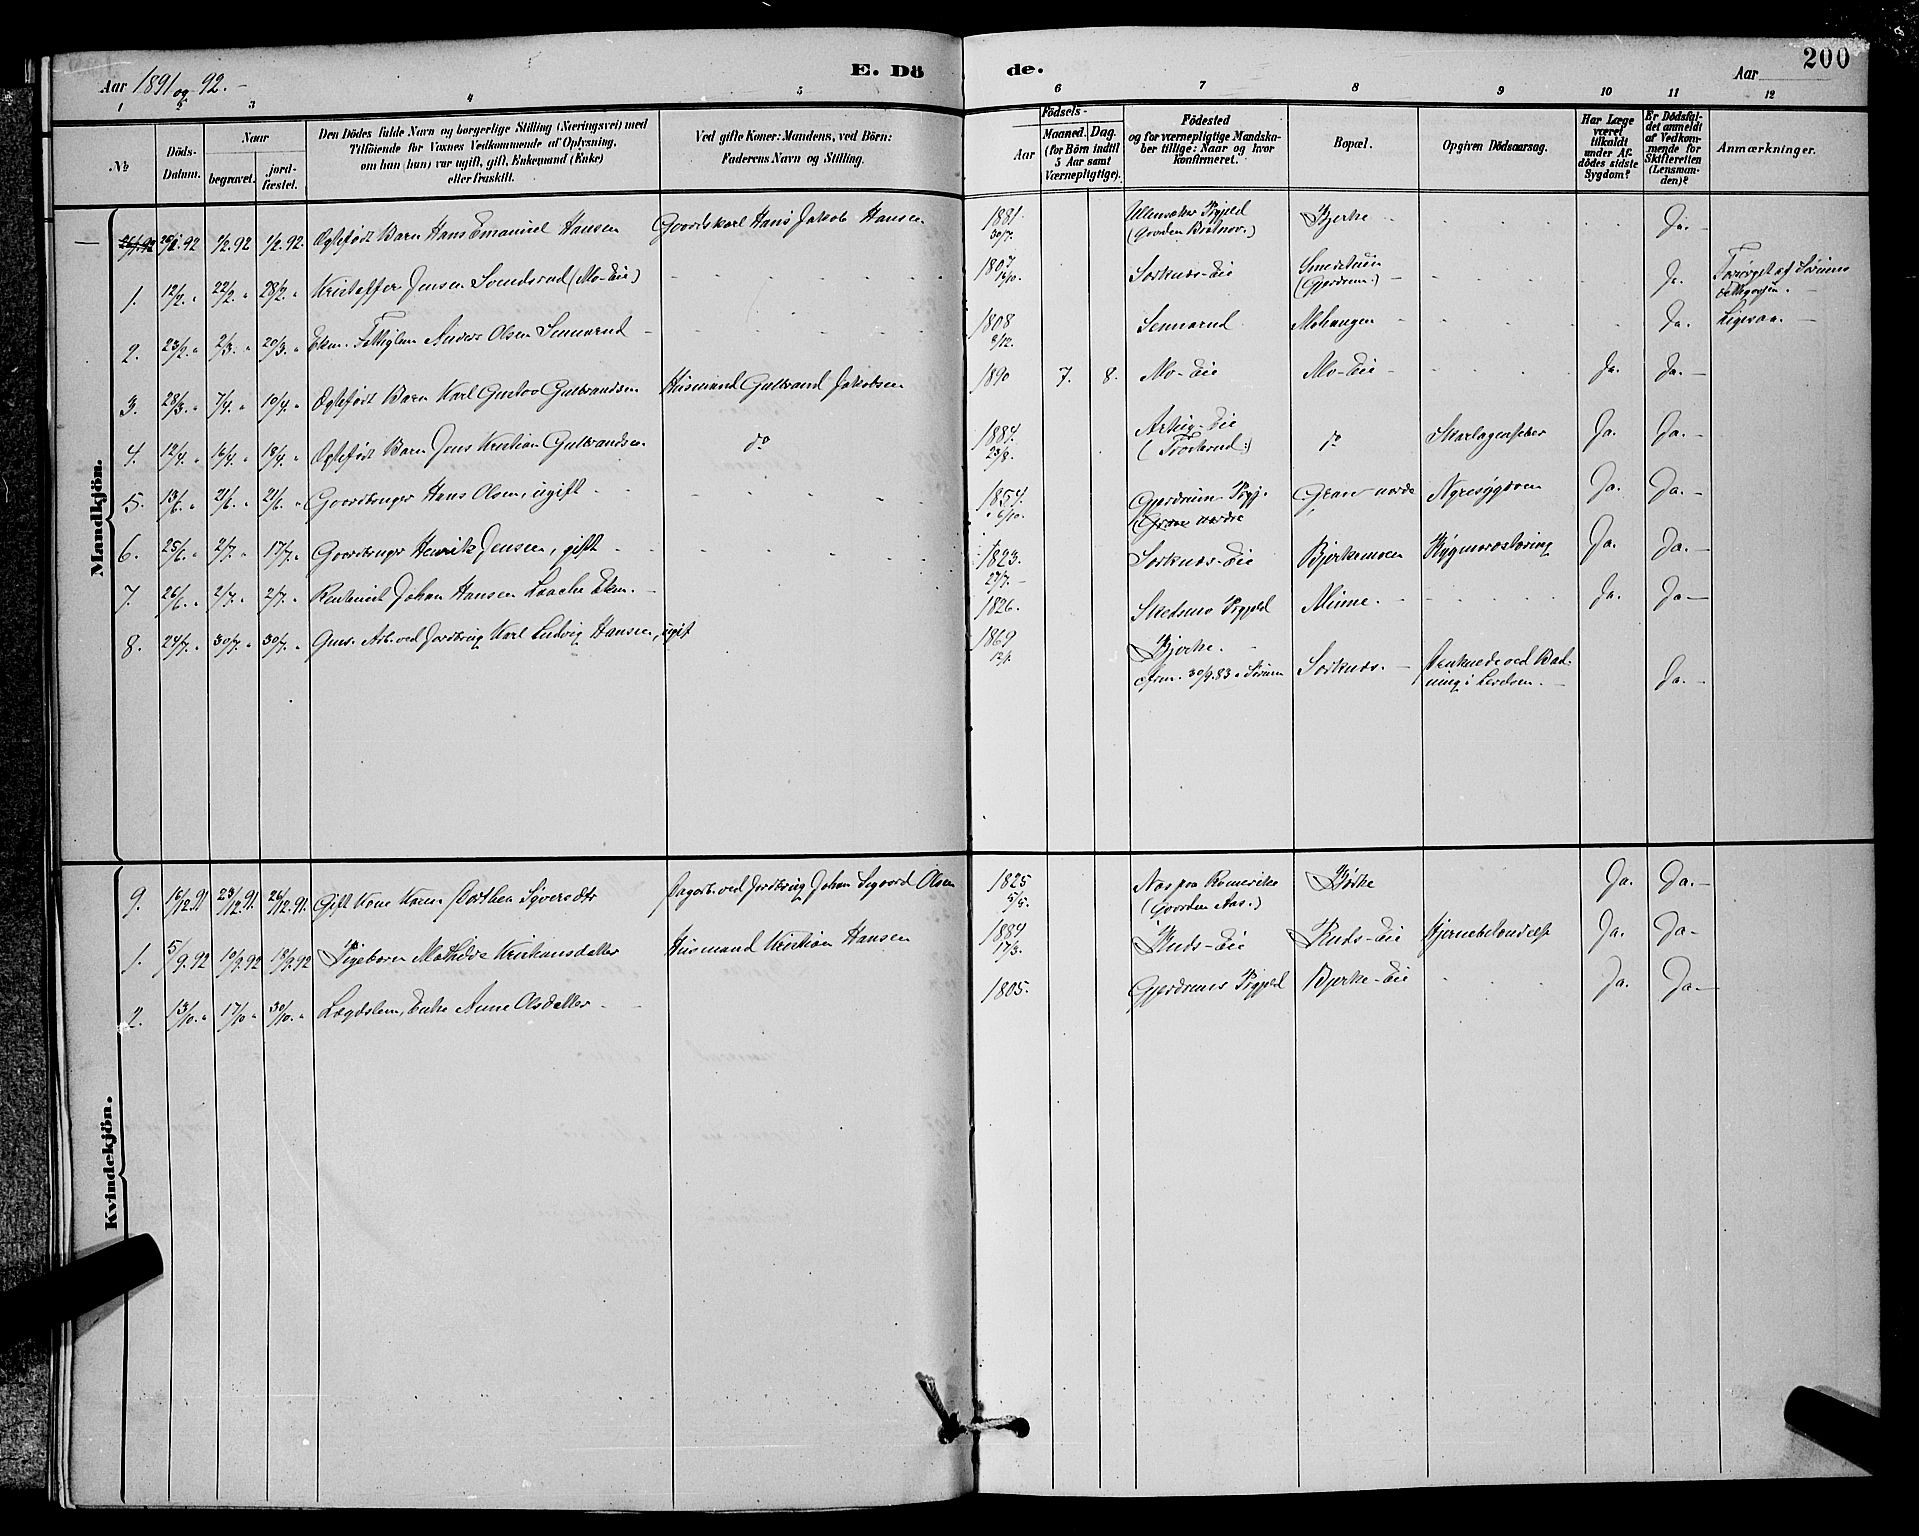 200
Aar 1891 og 92.-
E. Dö
de.
Aar
1 2 3 4 5 6 7 8 9 10 11 12
No
Döds-
Datum.
Naar
begravet.
jord-
fæstet.
Den Dödes fulde Navn og borgerlige Stilling (Næringsvei) med
Tilföiende for Voxnes Vedkommende af Oplysning,
om han (hun) var ugift, gift, Enkemand (Enke)
eller fraskilt.
Ved gifte Koner: Mandens, ved Börn:
Faderens Navn og Stilling.
Födsels-
Aar
Maaned. Dag.
(for Börn indtil
5 Aar samt
Værnepligtige).
Födested
og for værnepligtige Mandska-
ber tillige: Naar og hvor
konfirmeret.
Bopæl.
Opgiven Dödsaarsag.
Har Læge
været
tilkaldt
under Af-
dödes sidste
Sygdom?
Er Dödsfal-
det anmeldt
af Vedkom-
mende for
Skifteretten
(Lensman-
den)?
Anmærkninger.
Mandkjön.
26/1.92 1/2.92 1/2.92. Ægtefødt Barn Hans Emanuel Hansen Gaardskarl Hans Jakob Hansen 1881. 30/7. Ullensaker Prgjeld (Gaarden Bratnov.) Bjerke Ja.-
1. 12/2. " 22/2. " 28/2. " Kristoffer Jensen Svendsrud (Mo-Eie) 1807 12/10. Sorknæs-Eie Smedstuen (Gjerdrum.) Ja. -
2. 23/2. " 2/3. " 20/3. " Ekm. Fattiglem Anders Olsen Sennerud - 1808 8/12. Sennerud. Mohaugen Ja. -
3. 28/3. " 7/4. " 10/4. " Ægtefødt Barn Karl Gustav Gulbrandsen Husmand Gulbrand Jakobsen 1890 7. 8. Mo-Eie Mo-Eie Ja. Ja. -
4. 12/4. " 16/4. " 18/4. " Ægtefødt Barn Jens Kristian Gulbrandsen do 1884. 23/8. Arteig-Eie do Skarlagensfeber Ja. Ja. -
5. 13/6. " 21/6. " 21/6. " Gaardbruger Hans Olsen, ugift 1854. 6/10. Gjerdrum Prgj. (Gran nordre Gran nordre Nyresygdom Ja. Ja. -
6. 25/6. " 2/7. " 17/7. " Gaardbruger Henrik Jensen, gift 1823. 27/7. - Sorknæs-Eie Bjerkemoen Rygmarvstæring Ja. Ja. -
7. 26/6. " 2/7. " 2/7. " Johan Hansen Laache Ekm. - 1826. Skedsmo Prgjeld Minne. - Ja. Ja -
8. 24/7. " 30/7. " 30/7. " Arb. ved Jordbrug Karl Ludvig Hansen, ugift 1869 12/1. Bjerke. 30/9.83 i Sørum Sorknæs. - Druknede ved Bad-
ning i Leirelven. - Ja. -
Kvindekjön.
9. 16/12.91 23/12.91. 26/12.91. Gift Kone Karen Dorthea Syversdtr Dagarb. ved Jordbrug Johan Sigvard Olsen 1825 5/5. Næs paa Romerike (Gaarden Aas.) Bjerke Ja. Ja. -
1. 5/9.92 10/9.92 18/9.92 Pigebarn Mathilde Kristiansdatter Husmand Kristian Hansen 1884 17/3. Ruds-Eie Ruds-Eie Hjernebetændelse Ja. Ja -
2. 13/10. " 17/10 " 30/10. " Lægdslem, Enke Anne Olsdatter - 1805. Gjerdrums Prgjeld Bjerke-Eie Ja. Ja. -